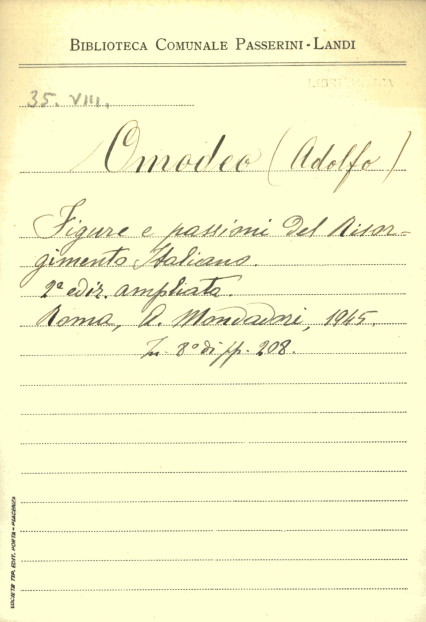 BIBLIOTECA COMUNALE PASSERINI-LANDI
35. VIII.
Omodeo (Adolfo)
Figure e passioni del Risor-
gimento Italiano.
2ª ediz. ampliata.
Roma, A. Mondadori, 1945.
In 8° di pp. 208.
SOCIETÀ TIP. EDIT. PORTA - PIACENZA